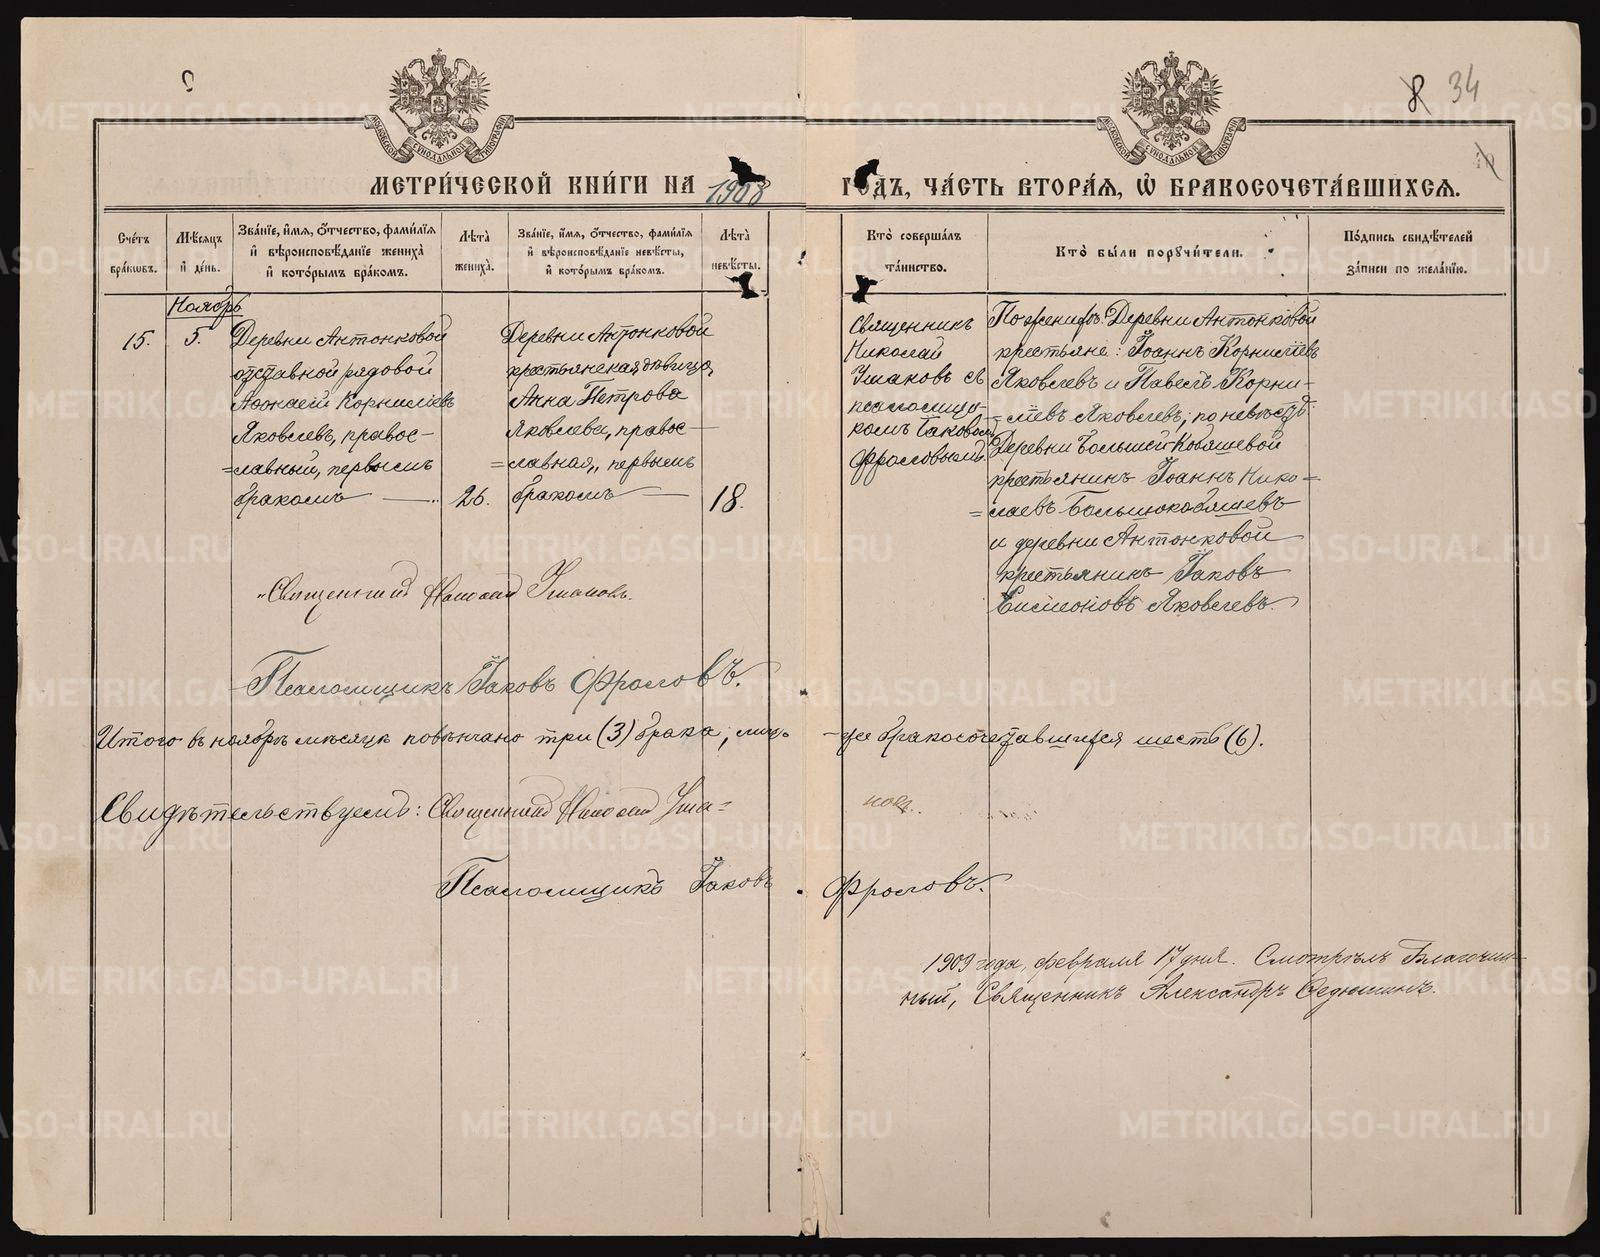 8 34
МОСКОВСКОЙ СѴНОДАЛЬНОЙ ТИПОГРАФІИ
МОСКОВСКОЙ СѴНОДАЛЬНОЙ ТИПОГРАФІИ
МЕТРИ́ЧЕСКОЙ КНИ́ГИ НА 1908 ГОДЪ, ЧА́СТЬ ВТОРА́Я, Ѡ БРАКОСОЧЕТА́ВШИХСЯ.
Сче́тъ бра́кωвъ.
Мѣ́сяцъ и де́нь.
Зва́нїе, и́мя, о́тчество, фами́лїя и вѣроисповѣ́данїе жениха̀ и кото́рымъ бра́комъ.
Лѣ́та жениха̀.
Зва́нїе, и́мя, о́тчество, фами́лїя и вѣроисповѣ́данїе невѣ́сты, и кото́рымъ бра́комъ.
Лѣ́та невѣ́сты.
Кто̀ соверша́лъ та́инство.
Кто̀ бы́ли порꙋчи́тели.
По́дпись свидѣ́телей за́писи по жела́нїю.
Ноябрь
15.
5.
Деревни Антонковой
отставной рядовой
Аѳонасій Корниліевъ
Яковлевъ, правос-
=лавный, первымъ
бракомъ
26.
Деревни Антонковой
крестьянская дѣвица,
Анна Петрова
Яковлева, правос-
=лавная, первымъ
бракомъ
18.
Священникъ
Николай
Ушаковъ съ
псаломщи-
комъ Іаковомъ
Фроловымъ.
По женихѣ: Деревни Антонковой
крестьяне: Іоаннъ Корниліевъ
Яковлевъ и Павелъ Корни-
=ліевъ Яковлевъ; по невѣстѣ:
Деревни Большей-Кобяшевой
крестьянинъ Іоаннъ Нико-
=лаевъ Большокобяшевъ
и деревни Антонковой
крестьянинъ Іаковъ
Яковлевъ.
Священникъ Николай Ушаковъ.
Псаломщикъ Іаковъ Фроловъ.
Итого въ ноябрѣ мѣсяцѣ повѣнчано три (3) брака, лицъ -же бракосочетавшихся шесть (6).
Свидѣтельствуемъ: Священникъ Николай Уша= ковъ.
Псаломщикъ Іаковъ Фроловъ.
1909 года, февраля 17 дня. Смотрѣлъ Благочин-
ный, Священникъ Александръ Федюшинъ.
METRIKI.GASO-URAL.RU